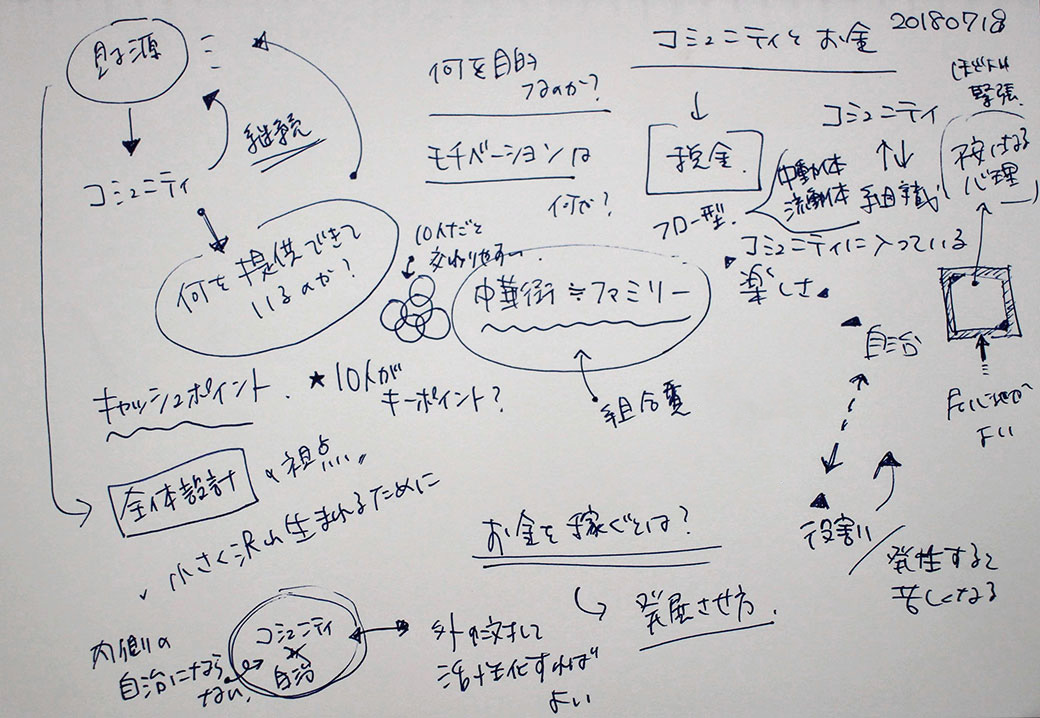 コミュニティとお金 20180718
財源
コミュニティ
継続
何を提供できて
いるのか?
何を目的
モチベーションは
何で?
税金
フロー型
コミュニティ
組織
中動体
流動体
緊張
不安になる
心理
コミュニティに入っている
楽しさ
10人だと
中華街≒ファミリー
組合費
自治
役割
発性すると
苦しくなる
居心地が
よい
キャッシュポイント
★10人が
キーポイント?
全体設計の視点
小さく沢山生まれるために
お金を稼ぐとは?
発展させ方
内側の
自治にならない
コミュニティ
自治
外に対して
活性化すれば
よい